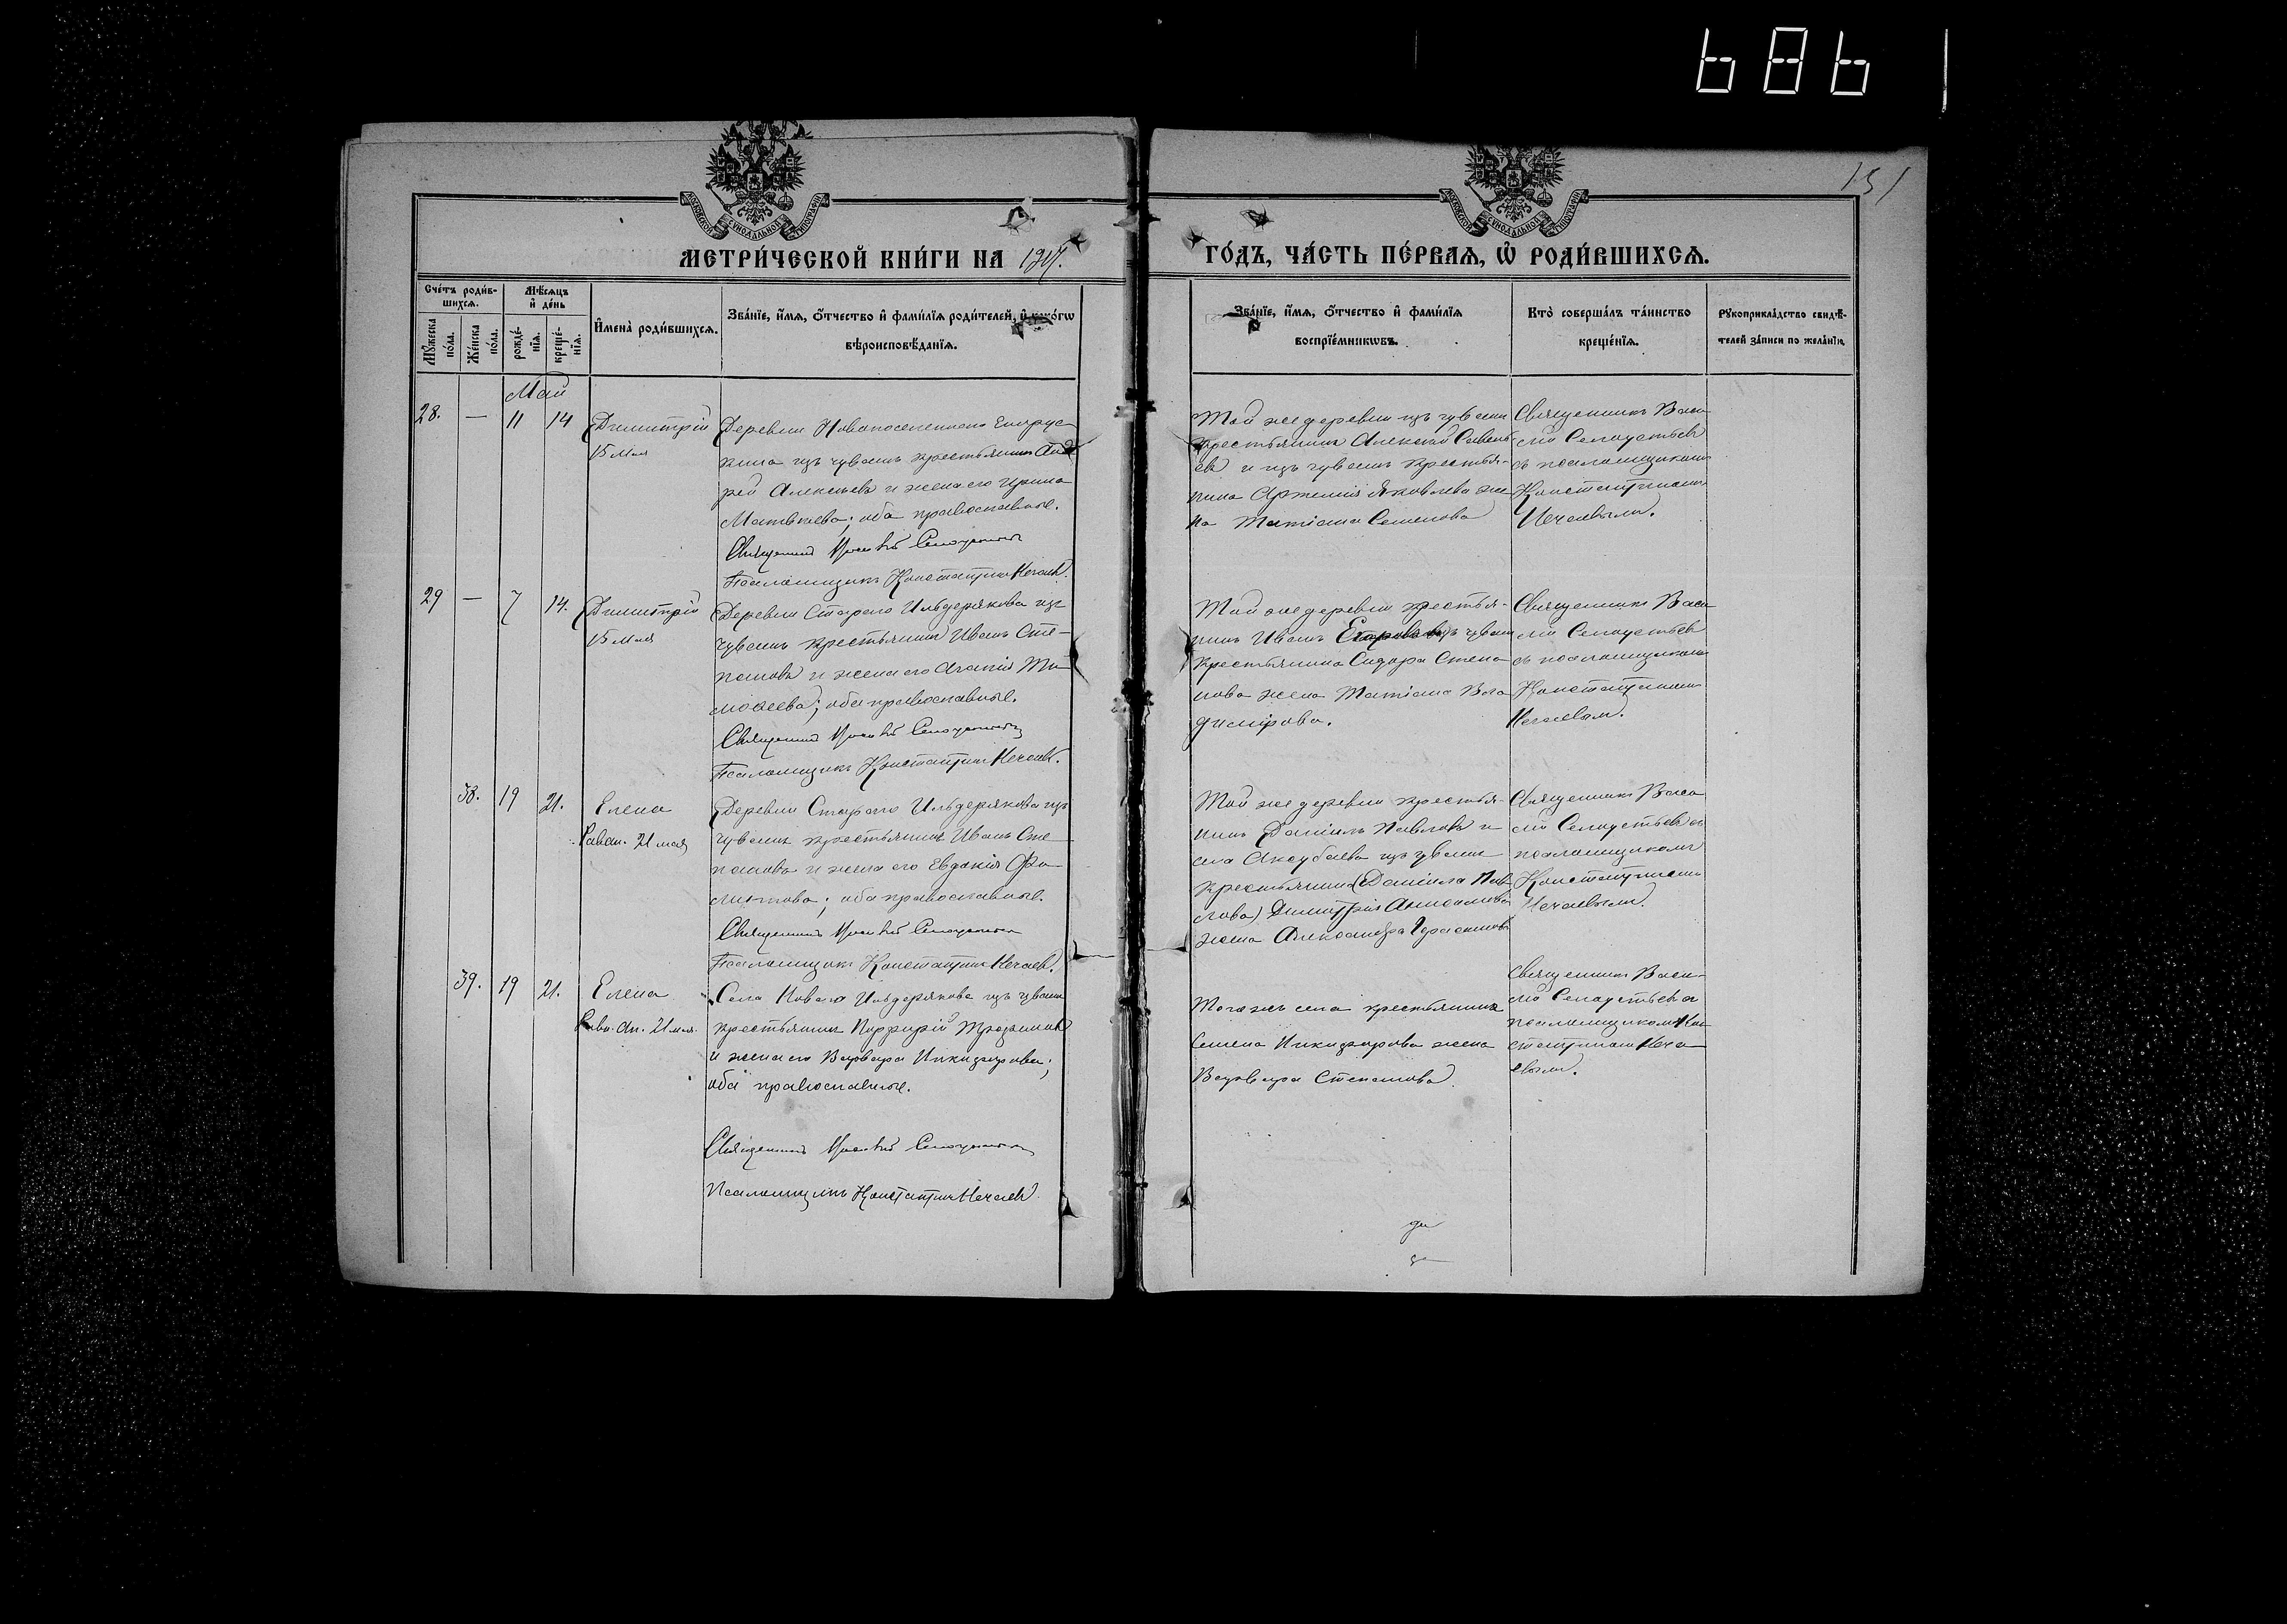 686
151
МОСКОВСКОЙ СѴНОДАЛЬНОЙ ТИПОГРАФІИ
МОСКОВСКОЙ СѴНОДАЛЬНОЙ ТИПОГРАФІИ
МЕТРИ́ЧЕСКОЙ КНИ́ГИ НА
ГО́ДЪ, ЧА́СТЬ ПЕ́РВАѦ, Ѿ РОДИ́ВШИХСѦ.
Сче́тъ роди́в-
шихсѧ.
Мѣ́сѧцъ
и҆ де́нь
Мꙋ́жеска
по́ла.
Же́нска
по́ла.
рожде́-
нїѧ.
креще́-
нїѧ.
И҆мена̀ роди́вшихсѧ.
Зва́нїе, и҆́мѧ, ѻ҆́тчество и҆ фами́лїѧ роди́телей, и҆ како́гѡ
вѣроисповѣ́данїѧ.
Зва́нїе, и҆́мѧ, ѻ҆́тчество и҆ фами́лїѧ
воспрїе́мникѡвъ.
Кто̀ соверша́лъ та́инство
креще́нїѧ.
Рꙋкоприкла́дство свидѣ́-
телей за́писи по жела́нїю.
Май
28. — 11 14
Димитрій
15 мая
Деревни Новопоселеннаго
кина изъ чувашъ крестьянинъ Анд
рей Алексѣевъ и жена его Ирина
Матвѣева; оба православные.
Священникъ Василій Селоустьевъ
Псаломщикъ Константинъ Нечаевъ.
Той же деревни изъ чувашъ
крестьянинъ Алексѣй Савель
евъ и изъ чувашъ крестья-
нина Артемія Яковлева же
на Татіана Семенова
Священникъ Васи
лій Селоустьевъ
съ псаломщикомъ
Константиномъ
Нечаевымъ.
29 — 7 14.
Димитрій
15 мая
Деревни Стараго Ильдерякова изъ
чувашъ крестьянинъ Иванъ Сте-
пановъ и жена его Агапія Ти-
моѳеева; оба православные.
Священникъ Василій Селоустьевъ
Псаломщикъ Константинъ Нечаевъ.
Той же деревни крестья-
нинъ Иванъ чуваш
крестьянина Сидора Степа
нова жена Татіана Вла
димірова.
Священникъ Васи
лій Селоустьевъ
съ псаломщикомъ
Константиномъ
Нечаевым.
38. 19 21.
Елена
21 мая
Деревни Стараго Ильдерякова изъ
чувашъ крестьянинъ Иванъ Сте
пановъ и жена его Евдокія Фи-
липпова; оба православные.
Священникъ Василій Селоустьевъ
Псаломщикъ Константинъ Нечаевъ.
Той же деревни крестья-
нинъ Даніилъ Павловъ и
села Аксубаева изъ чувашъ
крестьянина (Даніила Пав
лова) Димитрія
жена Александра Герасимова
Священникъ Васи
лій Селоустьевъ съ
псаломщикомъ
Константиномъ
Нечаевымъ.
39. 19 21.
Елена
21 мая.
Села Новаго Ильдерякова изъ чувашъ
крестьянинъ Порфирій Трофимовъ
и жена его Варвара Никифорова;
оба православные.
Священникъ Василій Селоустьевъ
Псаломщикъ Константинъ Нечаевъ.
Того жъ села крестьянина
Семена Никифорова жена
Варвара Степанова.
Священникъ Васи-
лій Селоустьевъ съ
псаломщикомъ Кон
стантиномъ Неча-
евымъ.